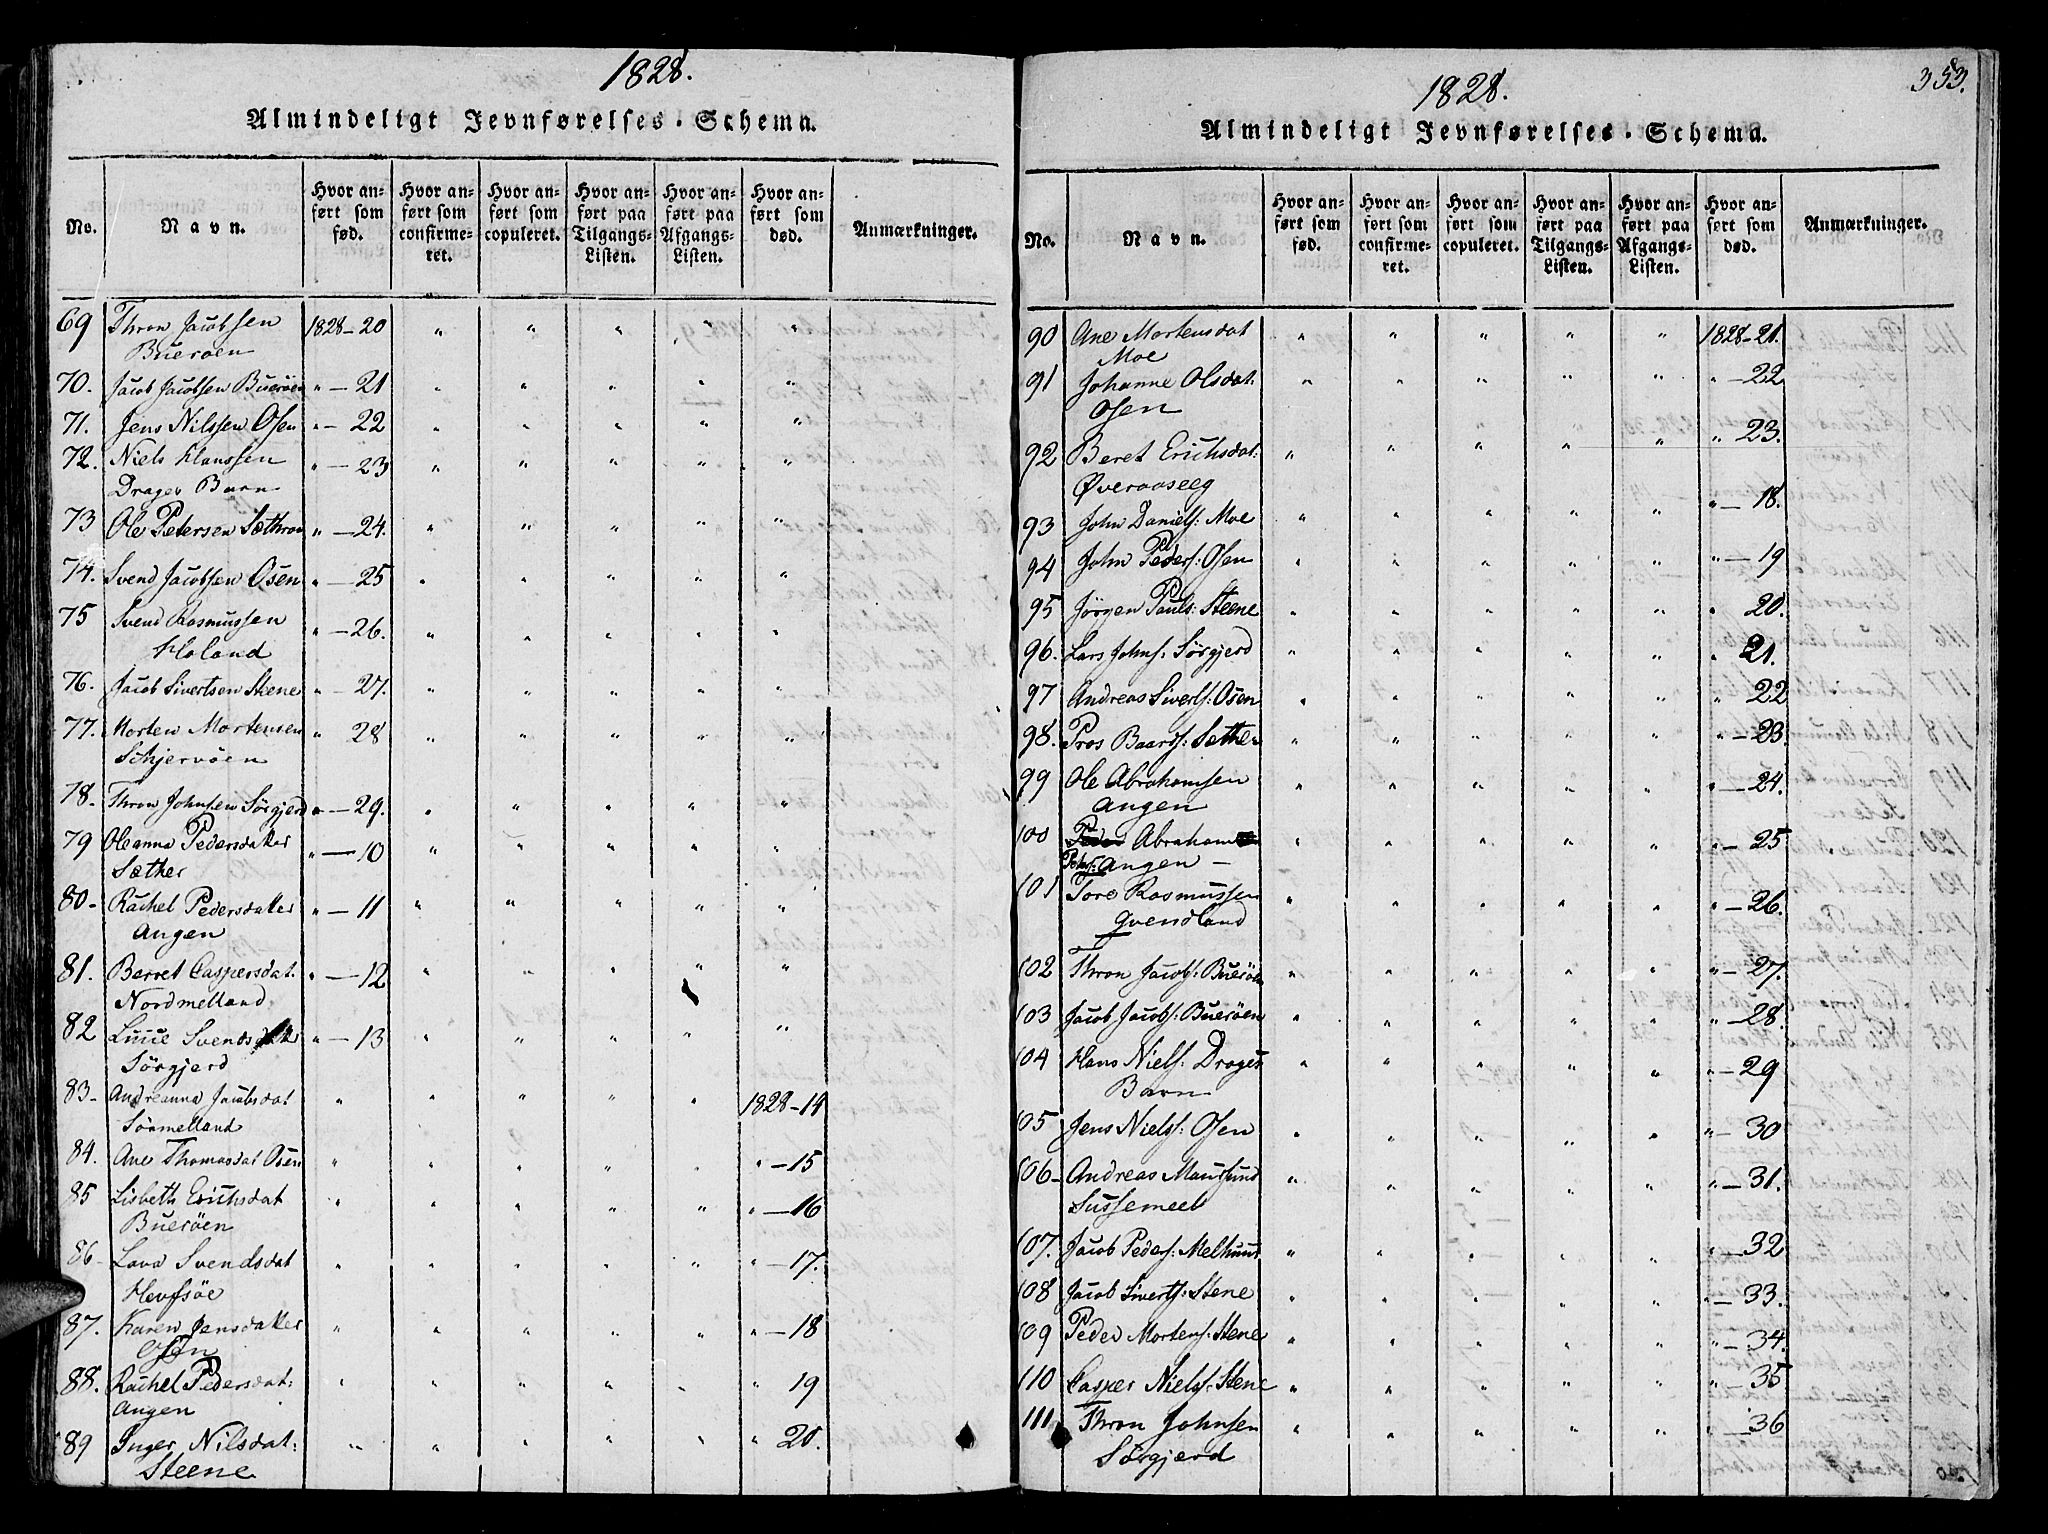 1828.
Almindeligt Jevnførelses-Schema.
No.
Navn.
Hvor anført som fød.
Hvor anført som confirmeret.
Hvor anført som copuleret.
Hvor anført paa Tilgangs-Listen.
Hvor anført paa Afgangs-Listen.
Hvor anført som død.
Anmærkninger.
69 Thron Jacobsen 1828-20 " " " " "
Buerøen
70. Jacob Jacobsen Buerøen " - 21 " " " " "
71. Jens Nilssen Osen " - 22 " " " " "
72. Niels Klaussen " - 23 " " " " "
Drages Barn
73 Ole Petersen Sæthran " - 24. " " " " "
74. Svend Jacobsen Osen " - 25 " " " " "
75 Svend Rasmussen " - 26. " " " " "
Haland
76. Jacob Sivertsen Steene " - 27. " " " " "
77. Morten Mortensen " 28 " " " " "
Schjervøen
78. Thron Johnsen Sørgjerd " - 29. " " " " "
79 Oleanna Pedersdatter " - 10 " " " " "
Sæther
80- Rachel Pedersdatter " - 11 " " " " "
Angen
81. Berret Caspersdat. " - 12 " " " " "
Nordmelland
82 Lucie Svendsdatter " - 13 " " " " "
Sörgjerd
83- Andreanna Jacobsdat " " " " " 1828-14
Sörmelland
84. Ane Thomasdat Osen " " " " " " - 15
85 Lisbeth Erichsdat " " " " " " - 16
Buerøen
86- Lava Svendsdat " " " " " " - 17.
Hevfsöe
87. Karen Jensdatter " " " " " " - 18
Osen
88. Rachel Pedersdat: " " " " " " 19
Angen
89 Inger Nilsdat: " " " " " " 20.
Steene
353.
1828.
Almindeligt Jevnførelses-Schema.
No.
Navn.
Hvor anført som fød.
Hvor anført som confirmeret.
Hvor anført som copuleret.
Hvor anført paa Tilgangs-Listen.
Hvor anført paa Afgangs-Listen.
Hvor anført som død.
Anmærkninger.
90 Ane Mortensdat " " " " " 1828-21.
Moe
91 Johanne Olsdat: " " " " " " - 22
Osen
92 Beret Erichsdat: " " " " " " 23.
Øveraaseeg
93 John Daniels: Moe " " " " " " - 18.
94 John Peders: Osen " " " " " " - 19
95 Jörgen Pauls: Steene " " " " " " 20.
96. Lars Johns: Sörgjerd " " " " " " 21.
97 Andreas Siverts: Osen " " " " " " 22
98. Pros Baards: Sæther " " " " " " - 23.
99 Ole Abrahamsen " " " " " " - 24.
Angen
100 Peder Abraham " " " " " " - 25
Peders: Angen -
101 Tore Rasmussen " " " " " " - 26.
Qvendland
102 Thron Jacobs: Buerøen " " " " " " - 27.
103 Jacob Jacobs: Buerøen " " " " " " - 28.
104 Hans Niels: Drages " " " " " " - 29
Barn
105 Jens Niels: Osen " " " " " " - 30
106- Andreas Maursund " " " " " " - 31.
Sussemeel
107. Jacob Peders: Melhuus " " " " " " - 32
108 Jacob Siverts: Stene " " " " " " - 33.
109 Peder Mortens: Stene " " " " " " - 34.
110 Casper Niels: Stene " " " " " " - 35
111. Thron Johnsen " " " " " " - 36
Sörgjerd